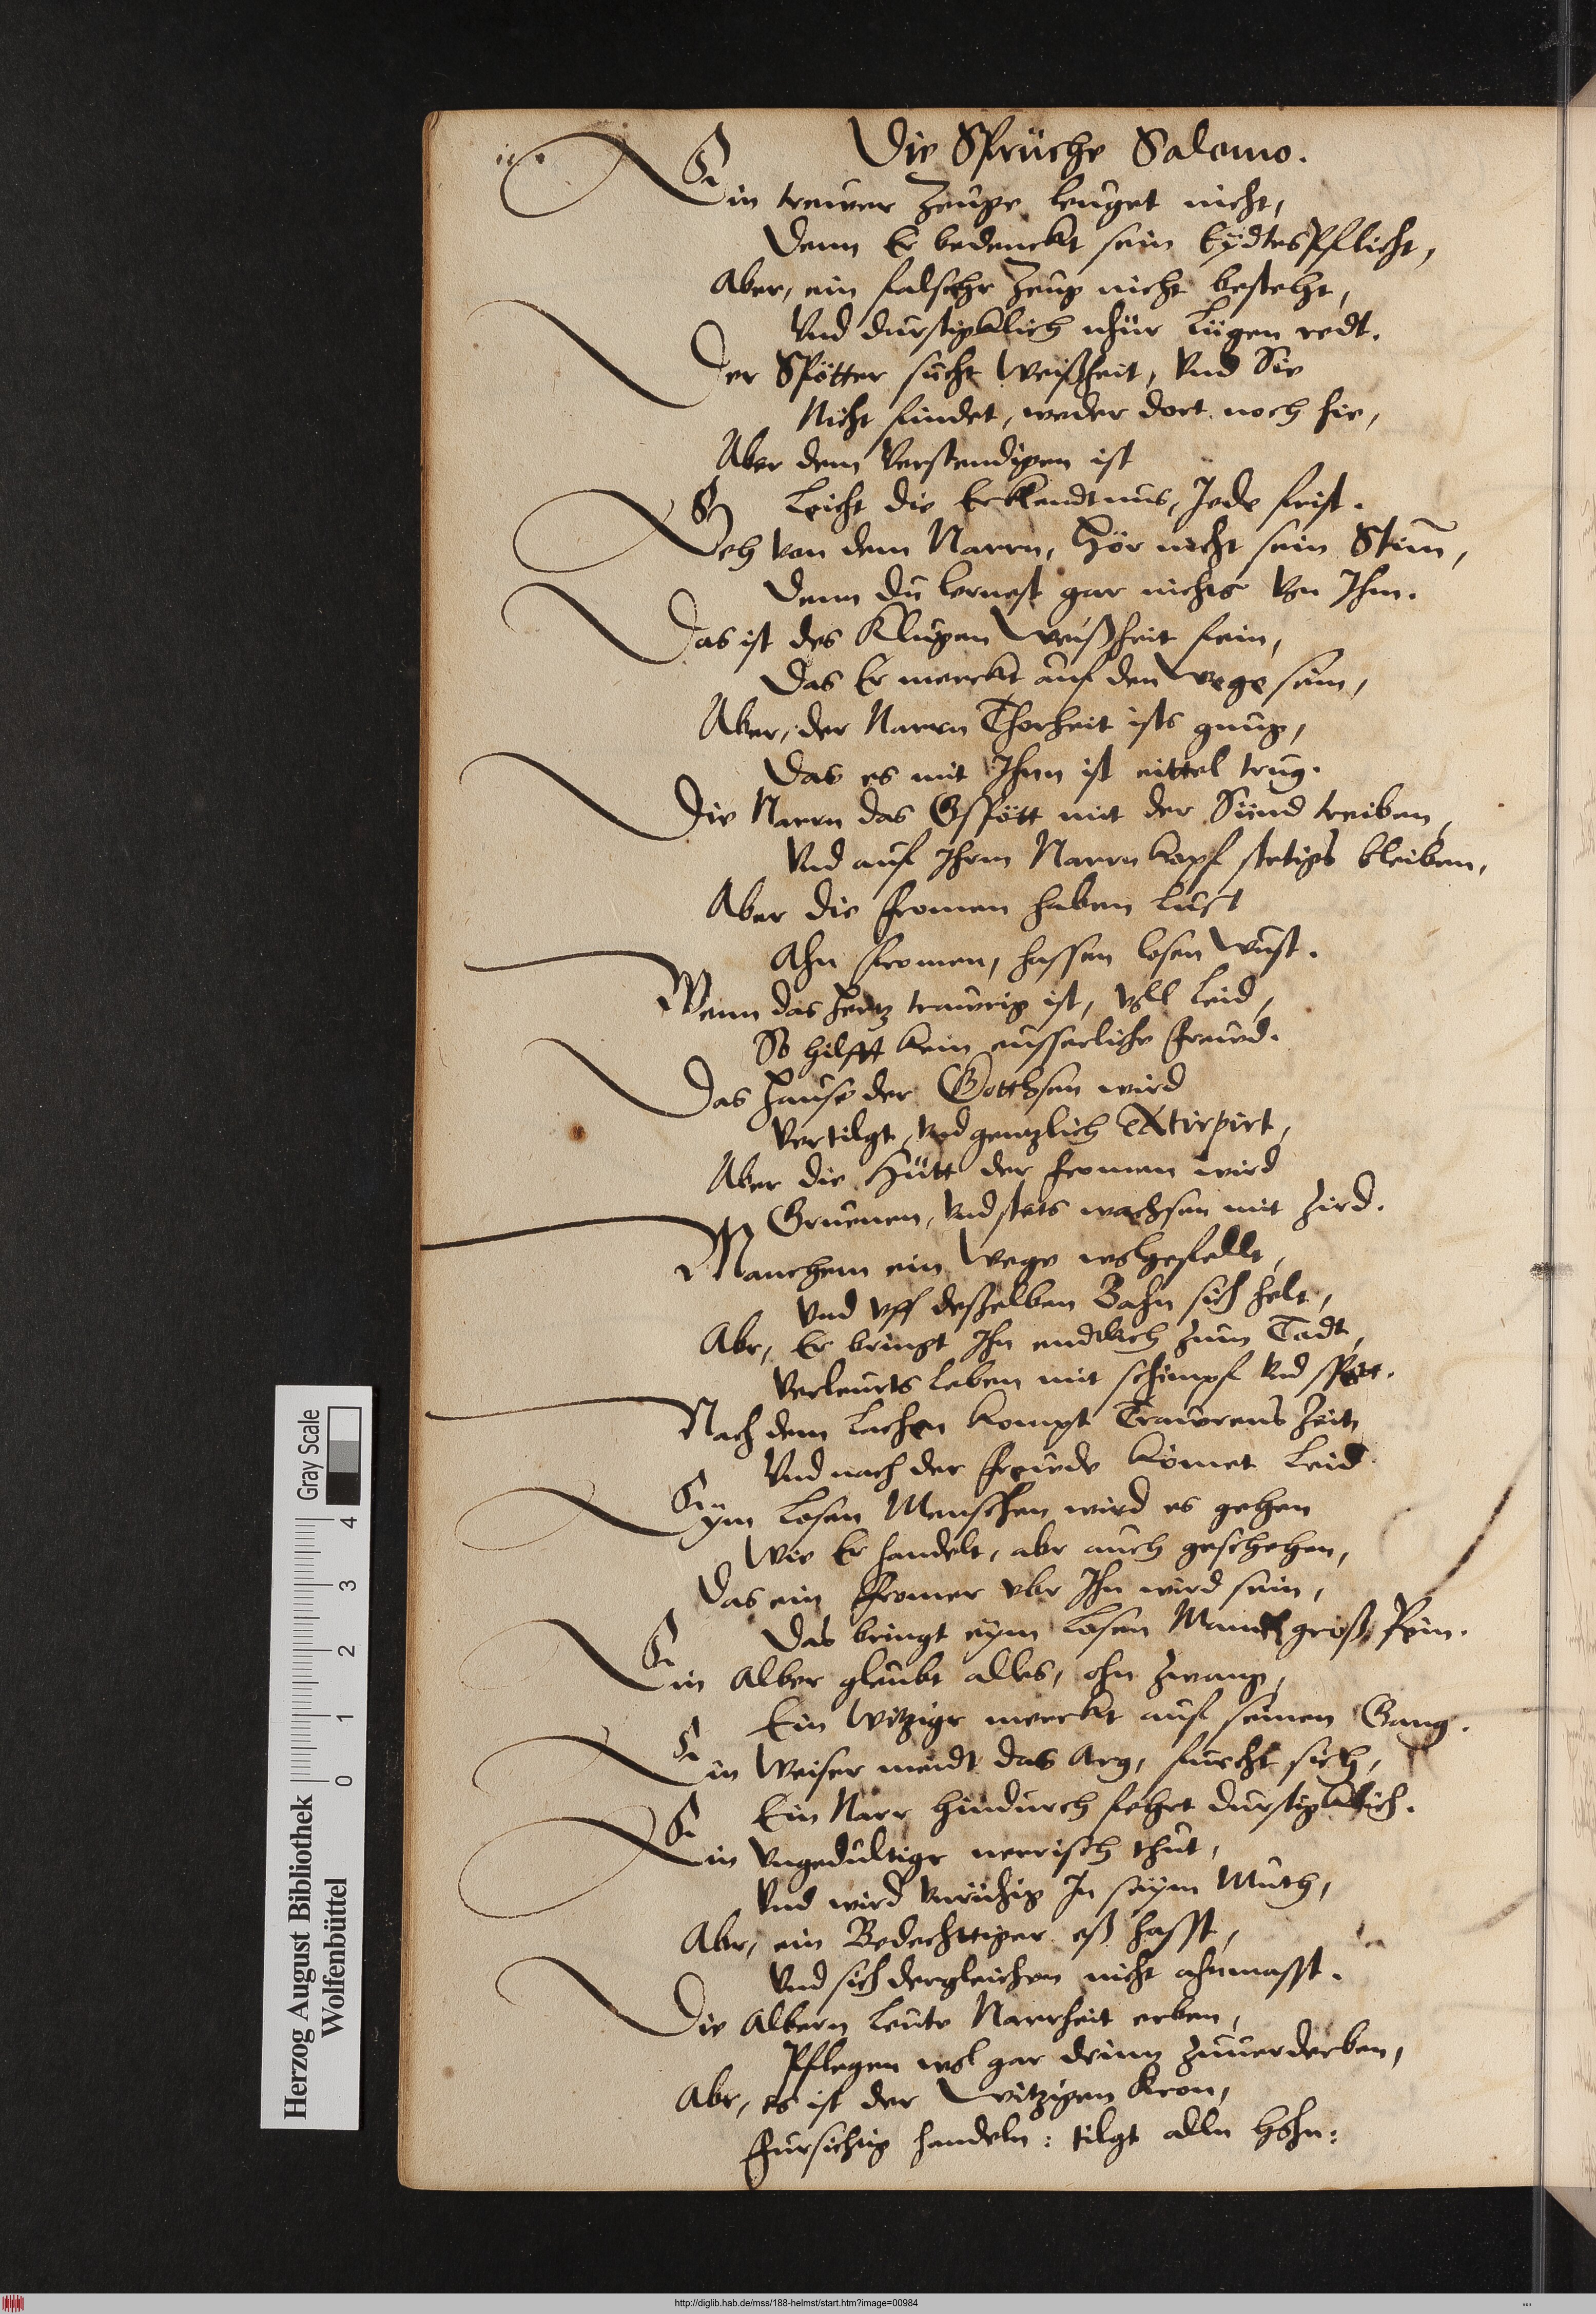 Die Sprüche Salomo.
Ein trewer Zeuge leuget nicht,
Denn Er bedenckt sein Eydtespflicht,
Aber, ein falscher Zeug nicht besteht,
Vnd durstigklich nhür Lügen redt.
Der Spötter sucht Weißheit, Vnd Sie
Nicht findet, weder dort noch hie,
Aber dem Verstendigen ist
Leicht die Erkendtnus, Jede frist.
Geh von dem Narrn, Hör nicht sein Stim̄,
Denn du lernest gar nichts von Ihm.
Das ist des Klugen Weißheit fein,
Das Er merckt auf den wege sein,
Aber, der Narrn Thorheit ists gnug,
Das es mit Ihnn ist eittel trug.
Die Narrn das Gspött mit der Sünd treiben,
Vnd auf Ihrm Narrnkopf stetigs bleiben,
Aber die fromen haben lust
Ahn fromen, hassen losen wust.
Wenn das Hertz trawrig ist, voll Leid,
So hilfft kein eusserliche frewd.
Das Hause der Gottlosen wird
Vertilgt, vnd gentzlich extirpirt,
Aber die Hütt der fromen wird
Gruenen, vnd stets wachsen mit Zird.
Manchem ein Wege wolgefellt,
Vnd vff deßelben Bahn sich helt,
Abr, Er bringt Ihn endtlich zum Todt,
Verleurts Leben mit schimpf vnd spott.
Nach dem Lachen kompt Trawrens Zeit,
Vnd nach der freude kömet Leid
Eym Losen Menschen wird es gehen
Wie Er handelt, abr auch geschehen,
Das ein fromer vbr Ihn wird sein,
Das bringt eym Losen Mann groß Pein.
Ein Alber gleubt alles, ohn Zwang,
Ein Witziger merckt auf seinen Gang.
Ein Weiser meidt das Arg, furcht sich,
Ein Narr hindurch fehrt durstigklich.
Ein Vngedultiger nerrisch thut,
Vnd wird vnrühig In seym Muth,
Abr, ein Bedechttiger eß hasst,
Vnd sich dergleichen nicht ahnmasst.
Die Albern Leute Narrheit erben,
Pflegen wol gar drinn zuuerderben,
Abr, es ist der Witzigen Kron,
Fursichtig handeln: tilgt alln Hohn:
Herzog August Bibliothek
Wolfenbüttel
0 1 2 3 4
Gray Scale
http://diglib.hab.de/mss/188-helmst/start.htm?image=00984